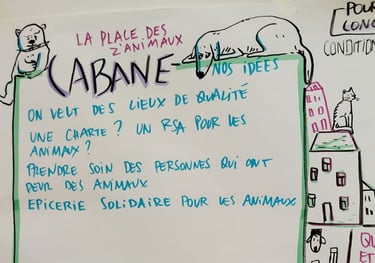 LA PLACE DES
Z'ANIMAUX
CABANE
NOS IDÉES
ON VEUT DES LIEUX DE QUALITÉ
UNE CHARTE ? UN RSA POUR LES
ANIMAUX ?
PRENDRE SOIN DES PERSONNES QUI ONT
PEUR DES ANIMAUX
EPICERIE SOLIDAIRE POUR LES ANIMAUX
POU
CONC
CONDITION
QU
ET